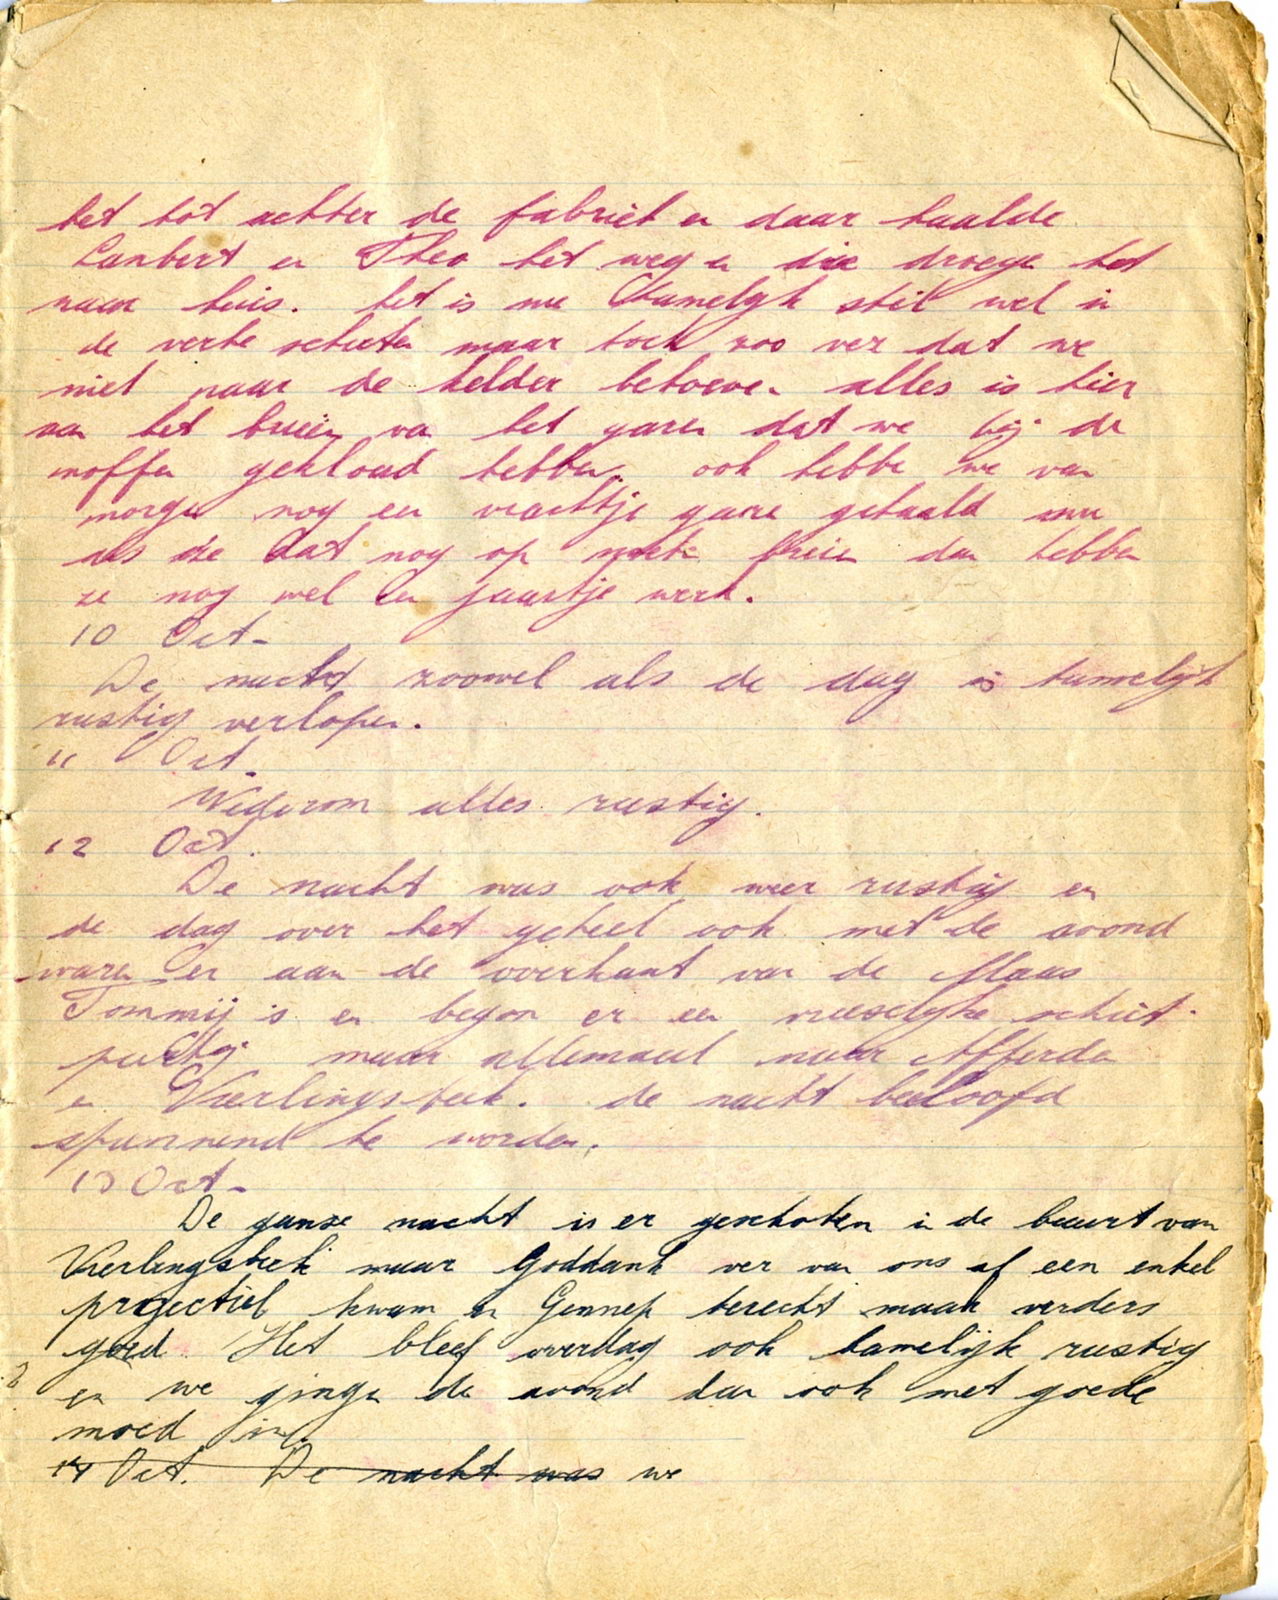 het tot achter de fabriek en daar haalde
Lambert en Theo het weg en die droegen het
naar huis. het is nu tamelijk stil wel in
de verte schieten maar toch zoo ver dat we
niet naar de kelder behoeven alles is hier
aan het breien van het garen dat we bij de
moffen gekloud hebben. ook hebbe we van
morgen nog een vrachtje garen gehaald
als ze dat nog op moeten breien dan hebben
ze nog wel een jaartje werk.
10 Oct-
De nacht zoowel als de dag is tamelijk
rustig verlopen.
11 Oct.
Wederom alles rustig.
12 Oct.
De nacht was ook weer rustig en
de dag over het geheel ook met de avond
waren er aan de overkant van de Maas
Tommij's en begon er een vreeselijke schiet-
partij maar allemaal naar Afferden
en Vierlingsbeek. de nacht beeloofd
spannend te worden.
13 Oct-
De ganse nacht is er geschoten in de buurt van
Vierlingsbeek maar Goddank ver van ons af een enkel
projectiel kwam in Gennep terecht maar verders
goed. Het bleef overdag ook tamelijk rustig
en we gingen de avond dan ook met goede
moed in.
14 Oct. De nacht was we